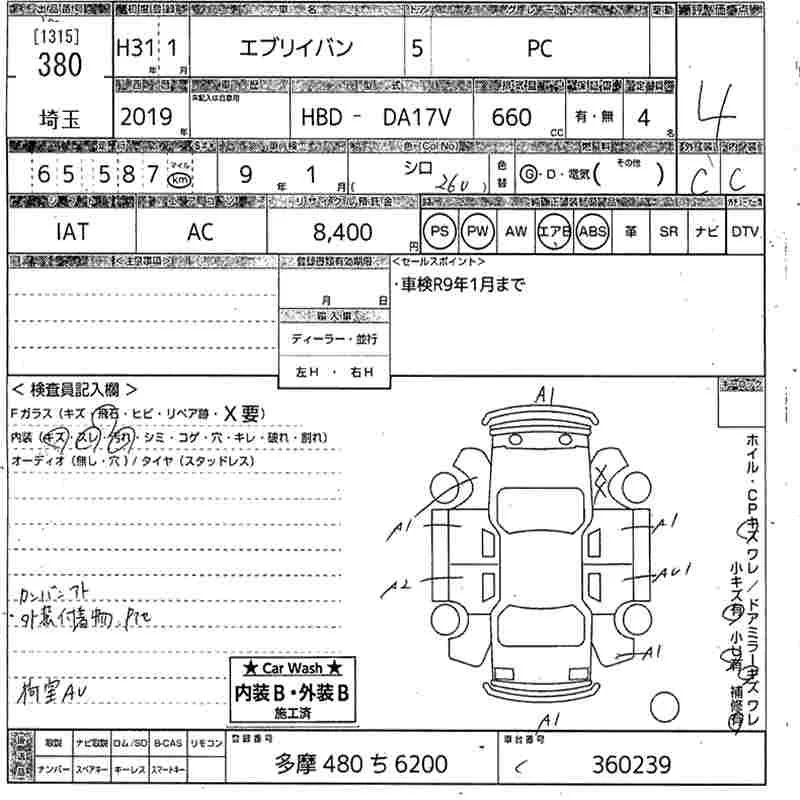 [1315]
380
埼玉
H31 年 1 月
エブリイバン
5
PC
評価点
4
2019 年
HBD - DA17V
660 CC
有・無
4 名
65587 マイル km
9 年 1 月
色(Col No)
シロ
260
色替
G・D・電気( その他 )
外装 内装
C C
IAT
AC
リサイクル預託金
8,400 円
PS PW AW エアB ABS 革 SR ナビ DTV
<注意事項>
登録書類有効期限
月 日
輸入車
ディーラー・並行
左H ・ 右H
<セールスポイント>
・車検R9年1月まで
< 検査員記入欄 >
Fガラス (キズ・飛石・ヒビ・リペア跡・X要)
内装 (キズ・スレ・汚れ・シミ・コゲ・穴・キレ・破れ・割れ)
オーディオ (無し・穴) / タイヤ (スタッドレス)
カンバンアト
・外装付着物、アト
荷室AU
A1
XX
A1
A1
A2
AU1
A1
A1
ホイル・CPキズワレ/ドアミラーキズワレ
小キズ有 小凹有 補修有
★ Car Wash ★
内装B・外装B
施工済
取説 ナビ取説 ロム/SD B-CAS リモコン
ナンバー スペアキー キーレス スマートキー
登録番号
多摩 480 ち 6200
車台番号
360239